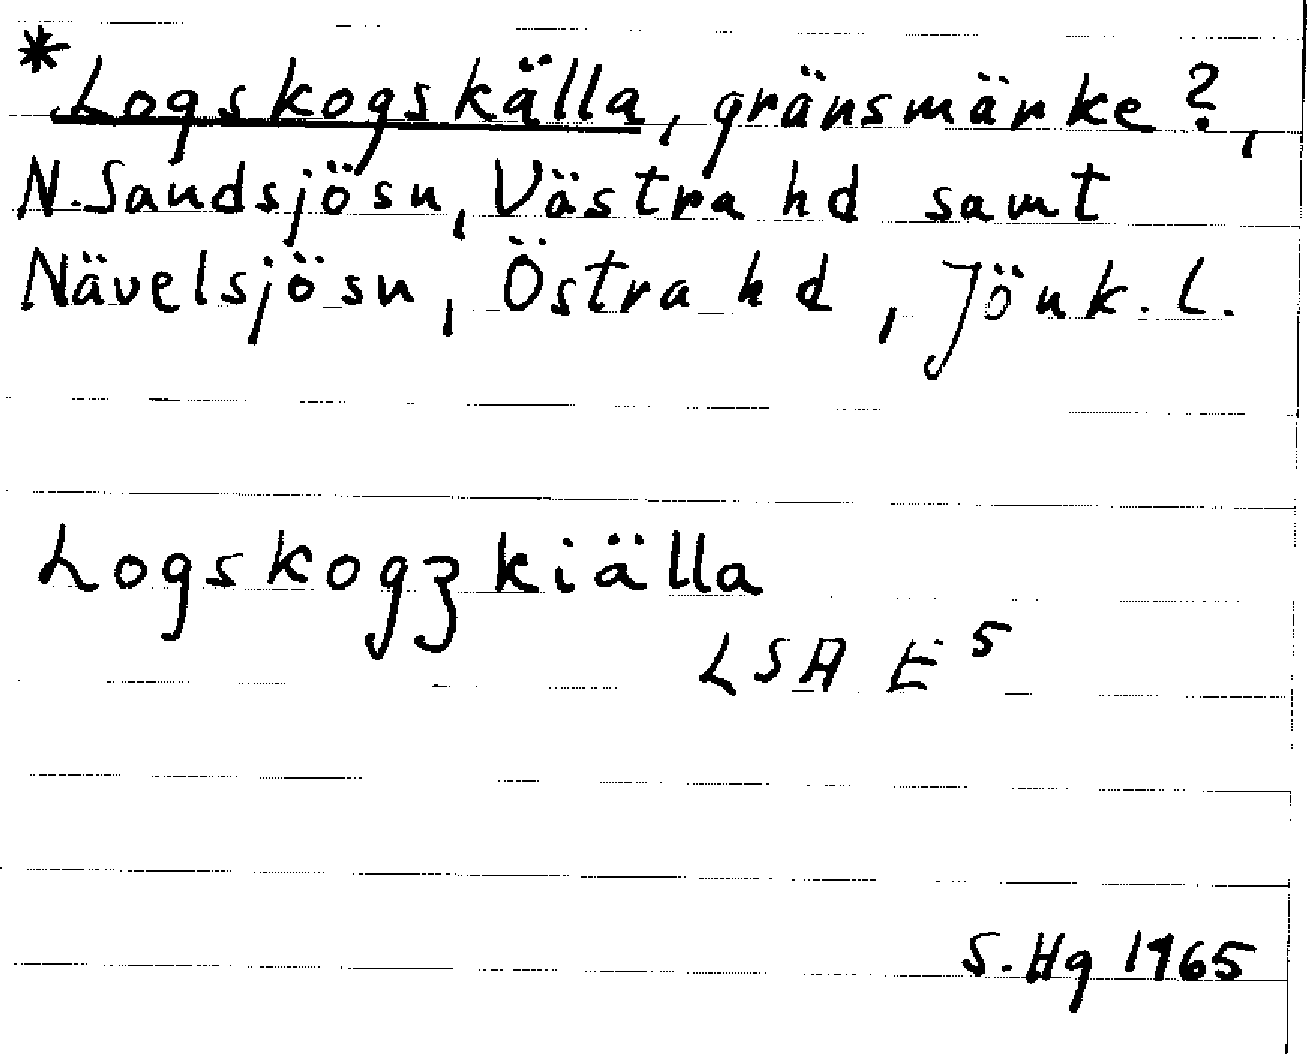 *Logskogskälla, gränsmärke?,
N. Sandsjösn, Västra hd samt
Nävelsjösn, Östra hd, Jönk. l.
Logskogzkiälla
LSA E⁵
S. Hg 1965